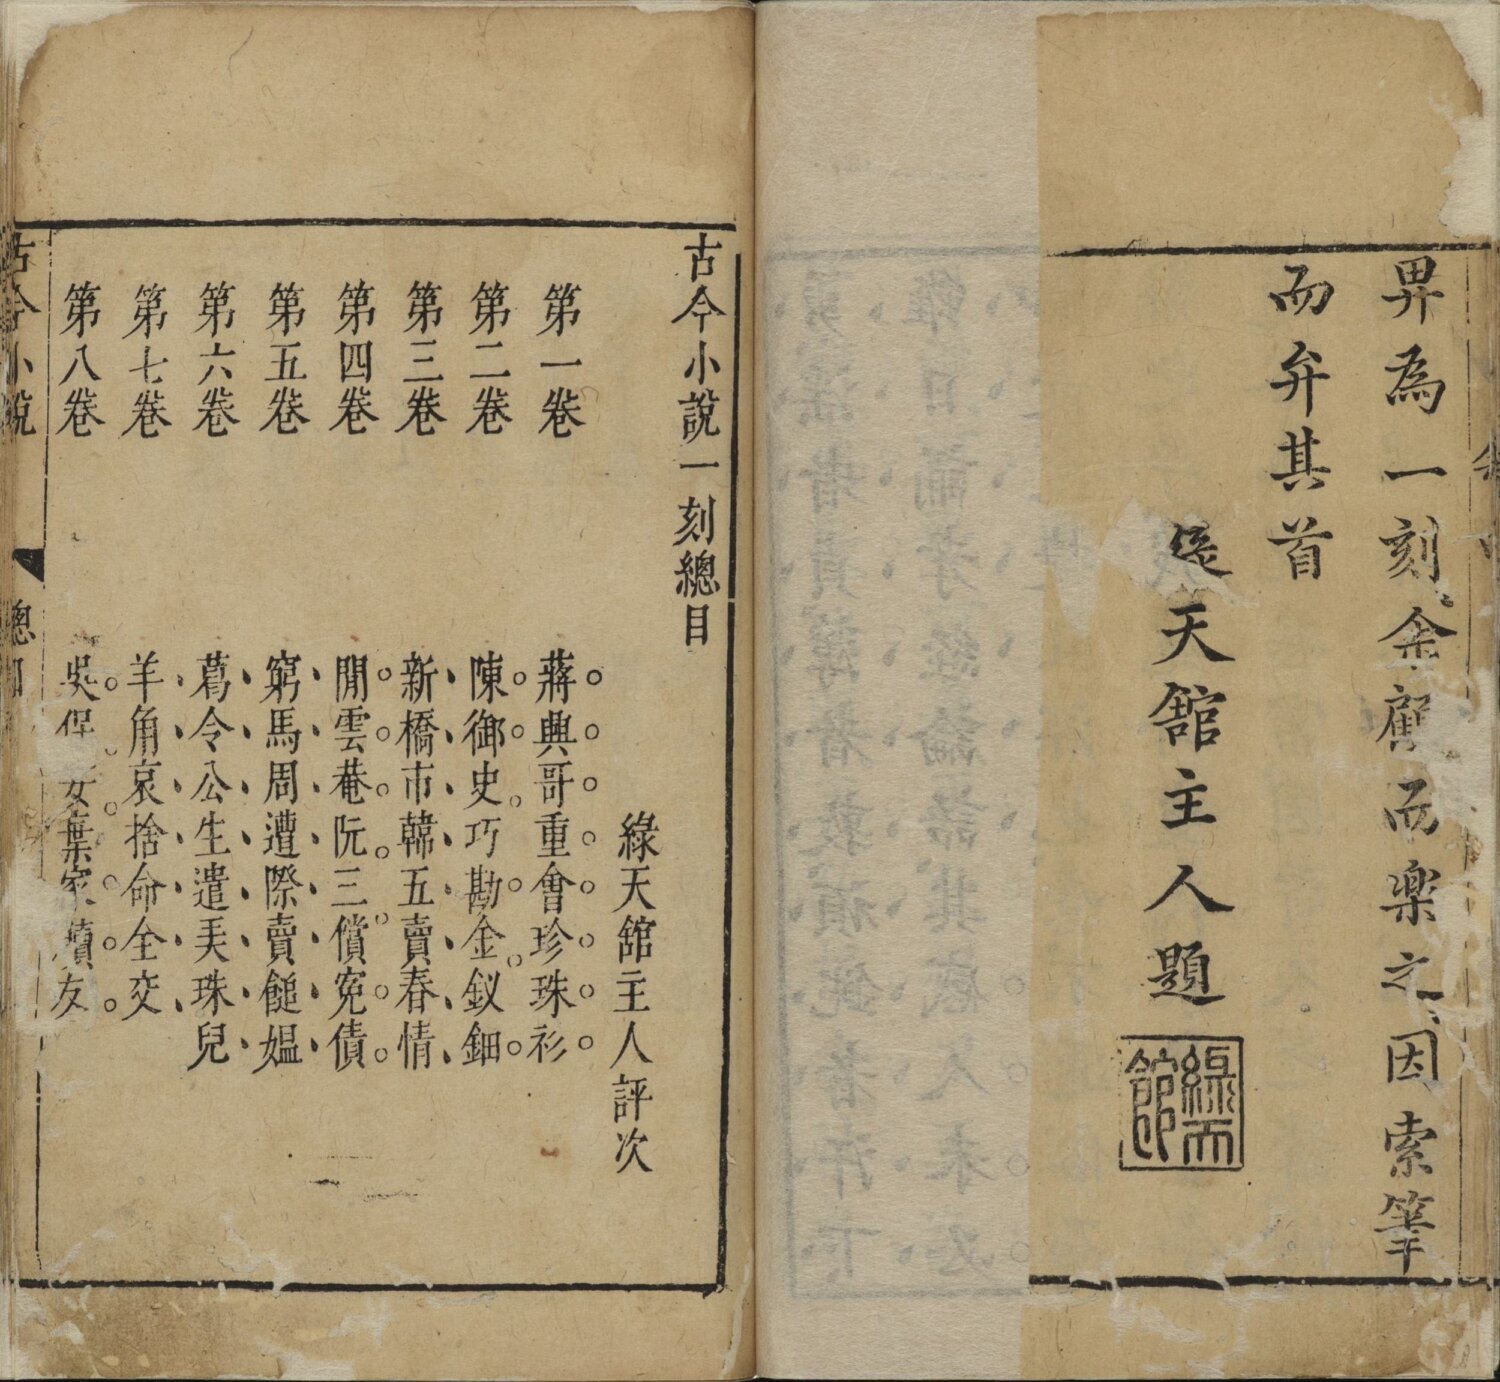 畀為一刻余顧而樂之因索筆
而弁其首
天舘主人題
綠天舘
古今小說一刻總目
綠天舘主人評次
第一卷 蔣興哥重會珍珠衫
第二卷 陳御史巧勘金釵鈿
第三卷 新橋市韓五賣春情
第四卷 閒雲菴阮三償寃債
第五卷 窮馬周遭際賣䭔媼
第六卷 葛令公生遣弄珠兒
第七卷 羊角哀捨命全交
第八卷 吳保安棄家贖友
古今小說 總目